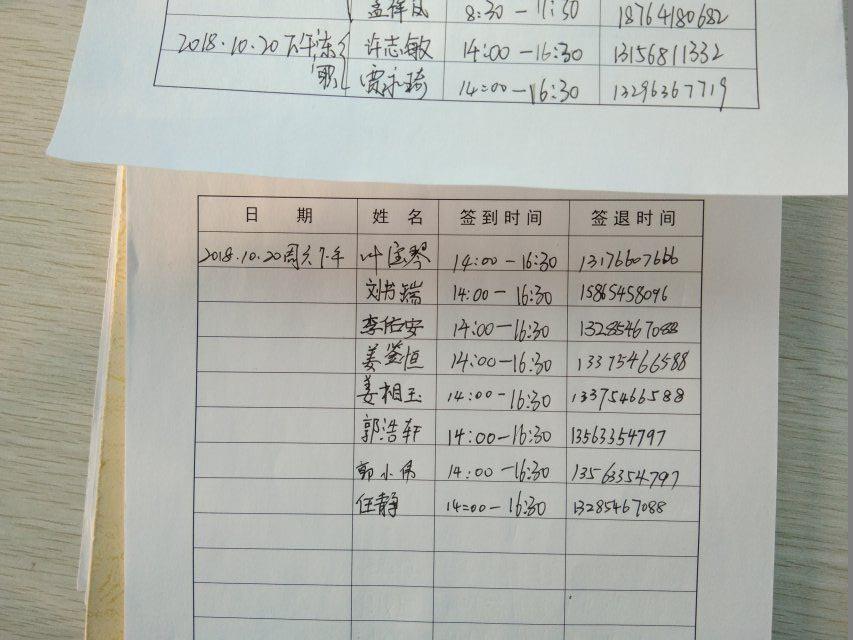 孟祥岚 8:30-11:30 18764180682
2018.10.20下午东 许志敏 14:00-16:30 13156811332
职 贾永琦 14:00-16:30 13296367719
日 期 姓 名 签到时间 签退时间
2018.10.20周六下午 叶宝琴 14:00-16:30 13176607666
刘书瑞 14:00-16:30 15865458096
李佑安 14:00-16:30 13285467088
姜鉴恒 14:00-16:30 13375466588
姜相玉 14:00-16:30 13375466588
郭浩轩 14:00-16:30 13563354797
郭小伟 14:00-16:30 13563354797
任静 14:00-16:30 13285467088